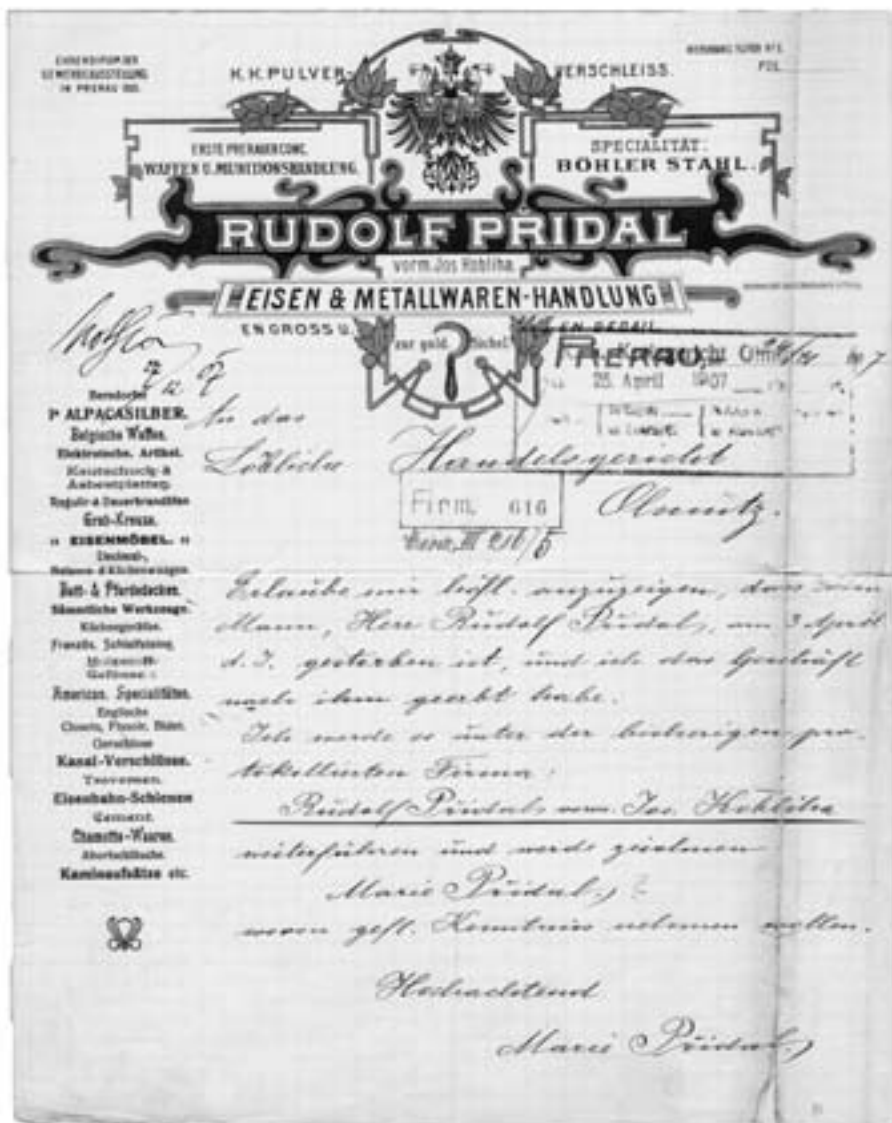 EHRENDIPLOM DER
GEWERBEAUSSTELLUNG
IN PRERAU
K.K. PULVER-
VERSCHLEISS.
FOL.
ERSTE PRERAUER CONC.
WAFFEN U. MUNITIONSHANDLUNG.
SPECIALITÄT:
BÖHLER STAHL.
RUDOLF PŘIDAL
vorm. Jos. Kobliha.
EISEN & METALLWAREN-HANDLUNG
EN GROSS U.
EN DETAIL.
zur gold. Sichel.
PRERAU,
25. April 1907
An das
Löbliche Handelsgericht
Olmütz.
Firm. 616
Berndorfer
Pa ALPACASILBER.
Belgische Waffen.
Elektrotechn. Artikel.
Kautschuck- &
Asbestplatten.
Regulir- & Dauerbrandöfen
Grab-Kreuze.
" EISENMÖBEL. "
Decimal-,
Balance- & Küchenwagen.
Bett- & Pferdedecken.
Sämmtliche Werkzeuge.
Küchengeräthe.
American. Specialitäten.
Englische
Closets, Pissoir, Bidet.
Geruchlose
Kanal-Verschlüsse.
Traversen.
Eisenbahn-Schienen
Cement.
Chamotte-Waaren.
Abortschläuche.
Kaminaufsätze etc.
Erlaube mir höfl. anzuzeigen, dass mein
Mann, Herr Rudolf Přidal, am 3 April
d. J. gestorben ist, und ich das Geschäft
nach ihm geerbt habe.
Ich werde es unter der bisherigen pro-
tokollirten Firma:
Rudolf Přidal, vorm. Jos. Kobliha
weiterführen und werde zeichnen
Marie Přidal,
wovon gefl. Kenntniss nehmen wollen.
Hochachtend
Marie Přidal